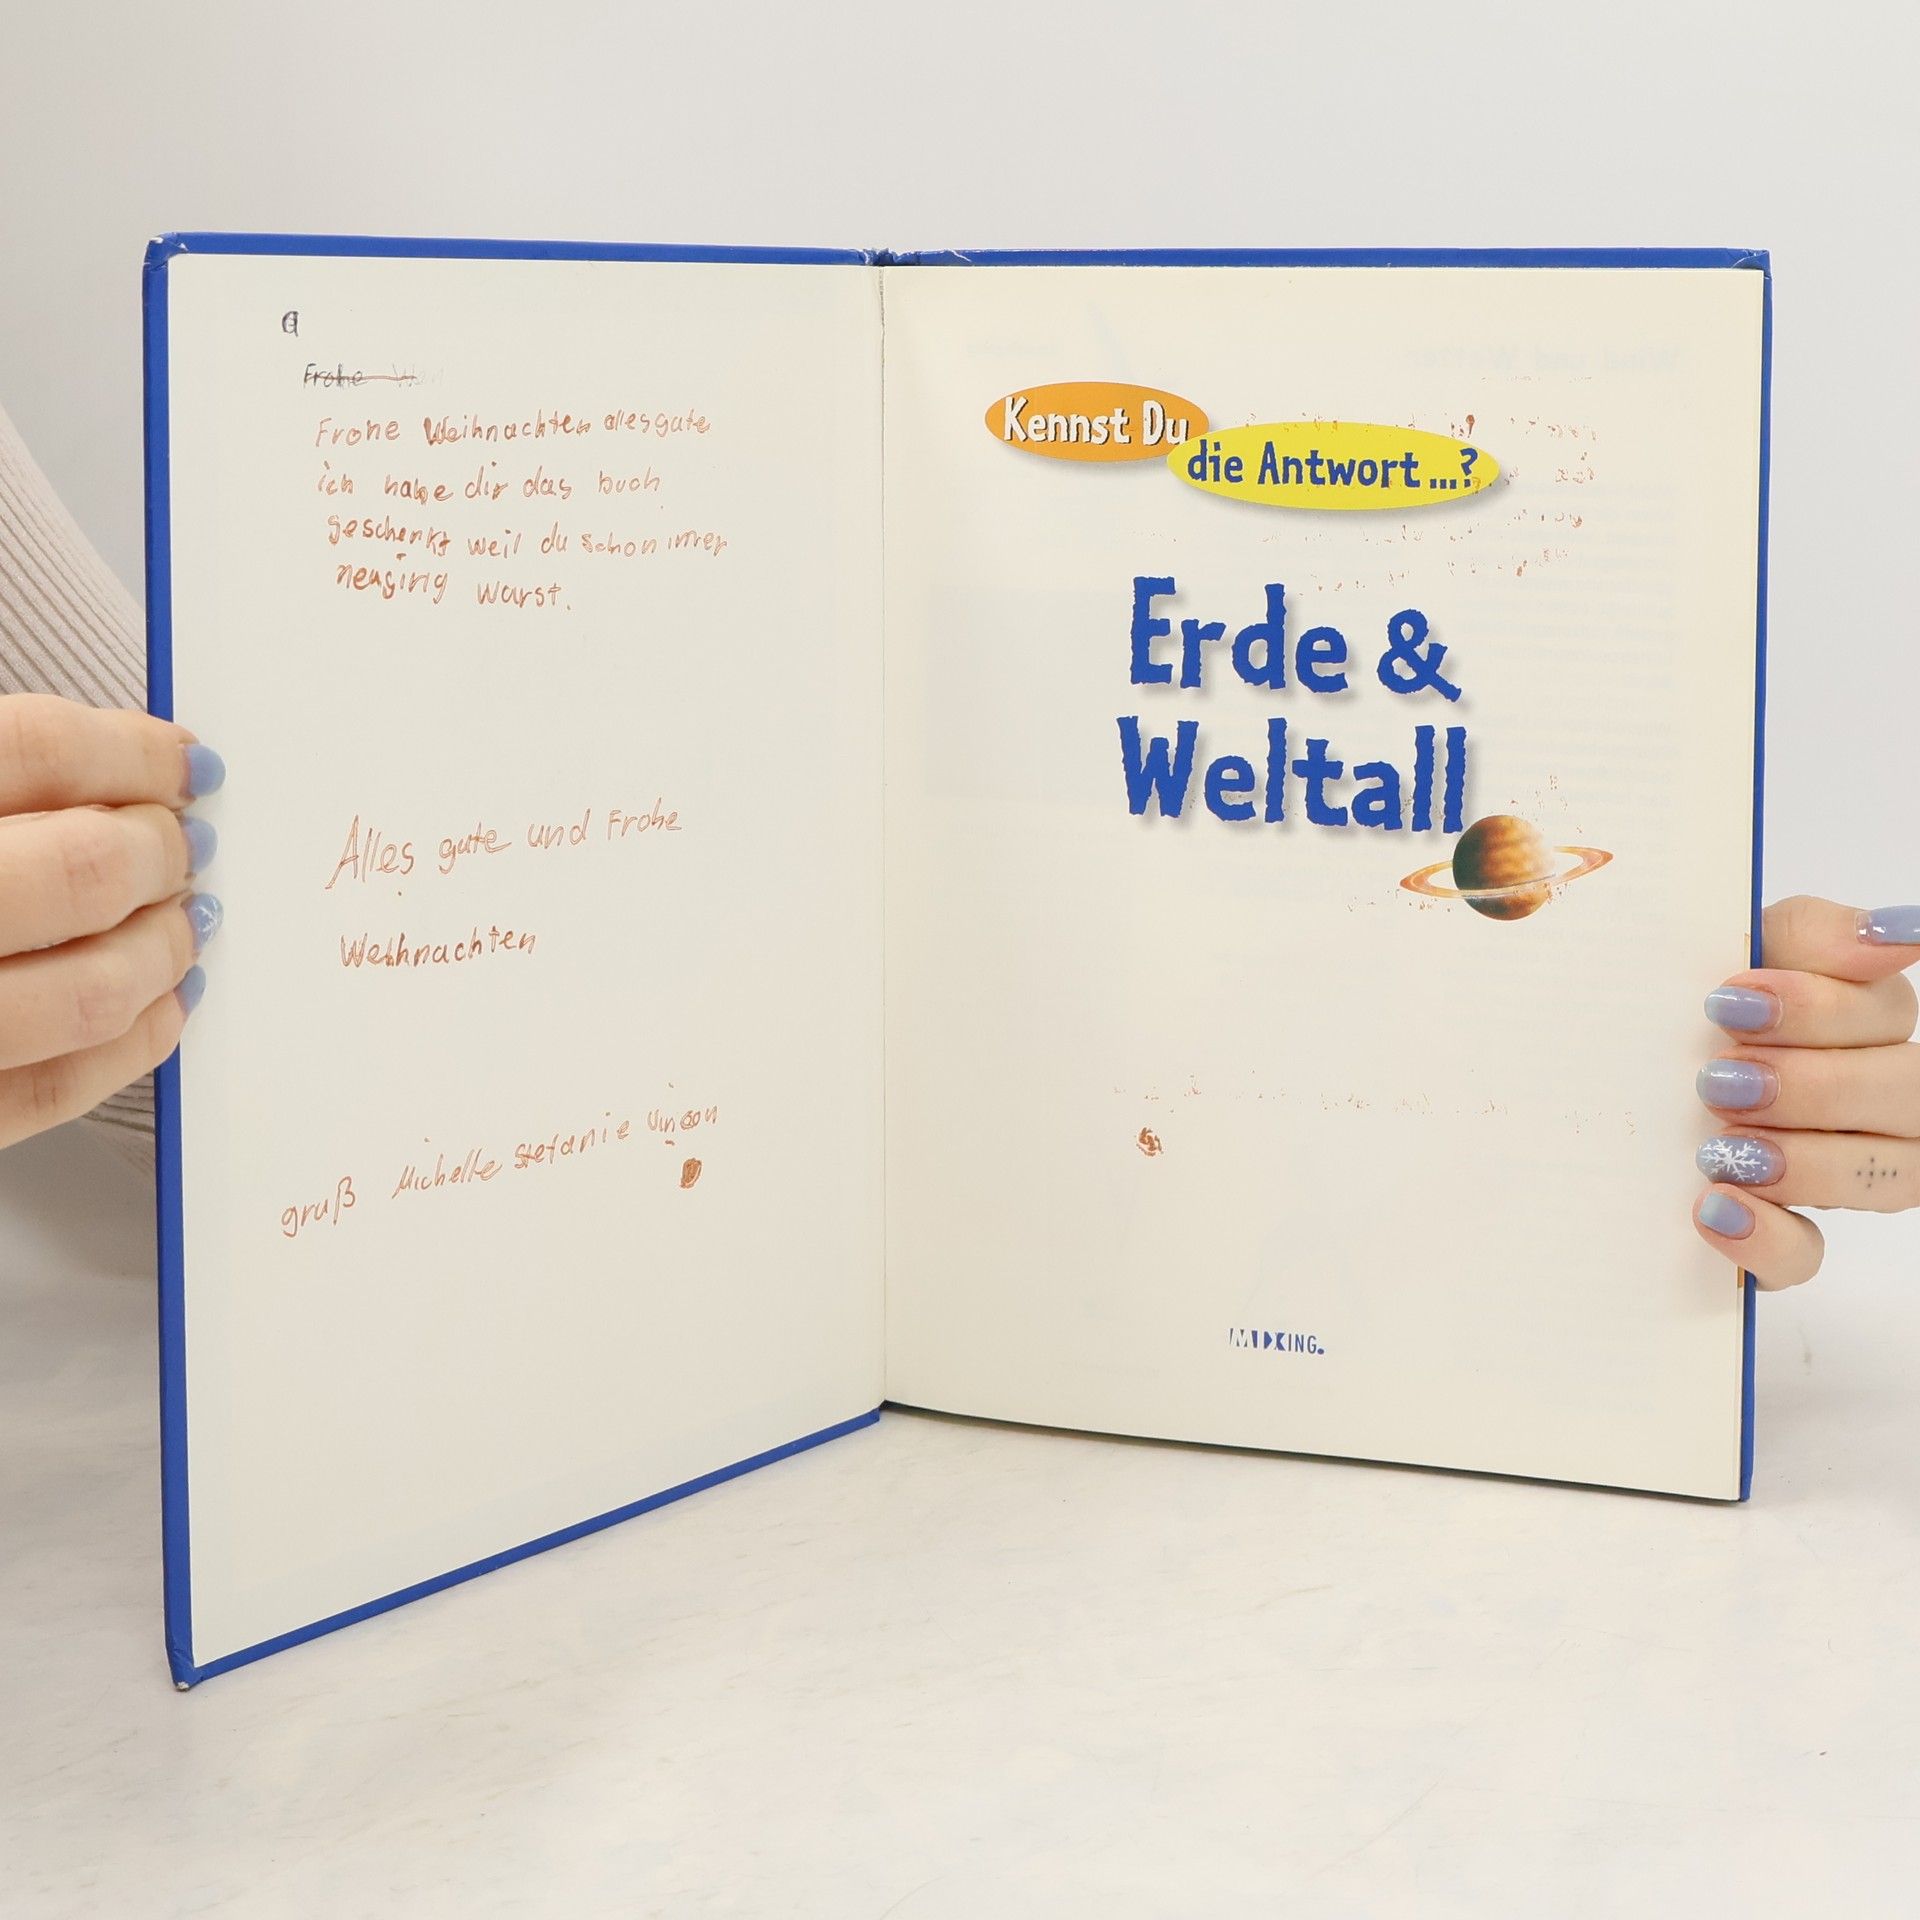 Frohe Weihnachten allesgute
ich habe dir das buch
geschenkt weil du schon immer
neugirig warst.
Alles gute und Frohe
Weihnachten
gruß Michelle Stefanie
Kennst Du
die Antwort...?
Erde &
Weltall
MIXING.